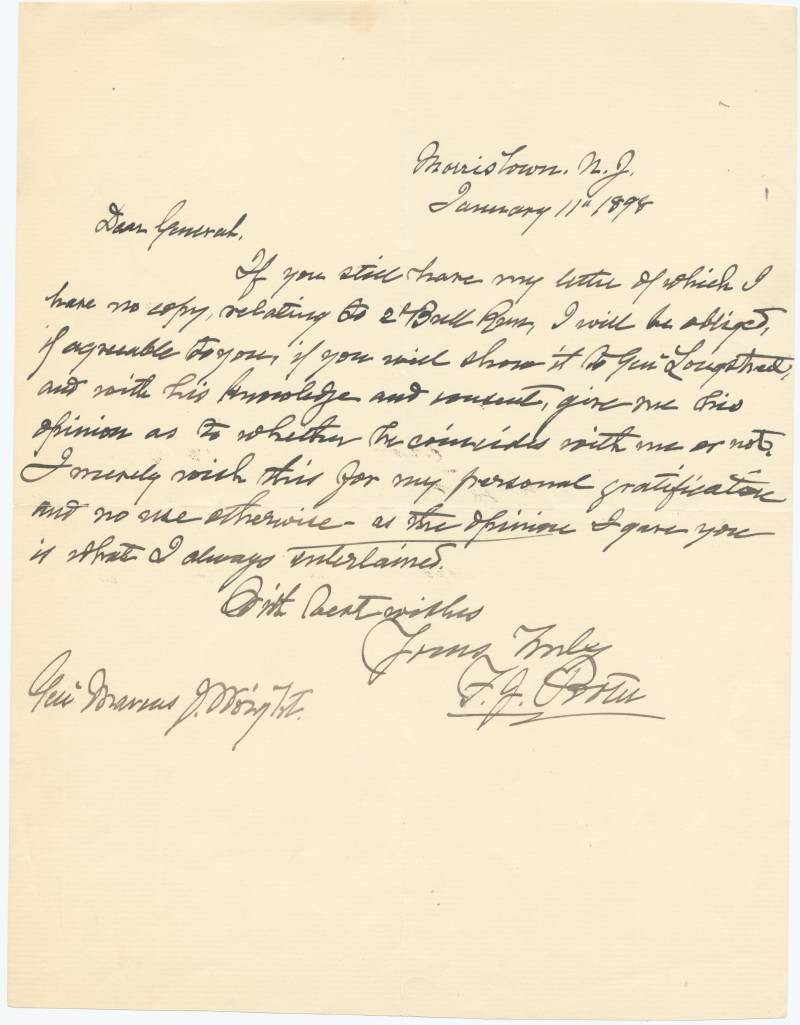 Morristown. N. J.
January 11" 1898
Dear General,
If you still have my letter of which I
have no copy, relating to 2d Bull Run, I will be obliged,
if agreeable to you, if you will show it to Genl Longstreet,
and with his knowledge and consent, give me his
opinion as to whether he coincides with me or not.
I merely wish this for my personal gratification
and no use otherwise - as the opinion I gave you
is what I always entertained.
With best wishes
Yours Truly
F. J. Porter
Genl Marcus J. Wright.